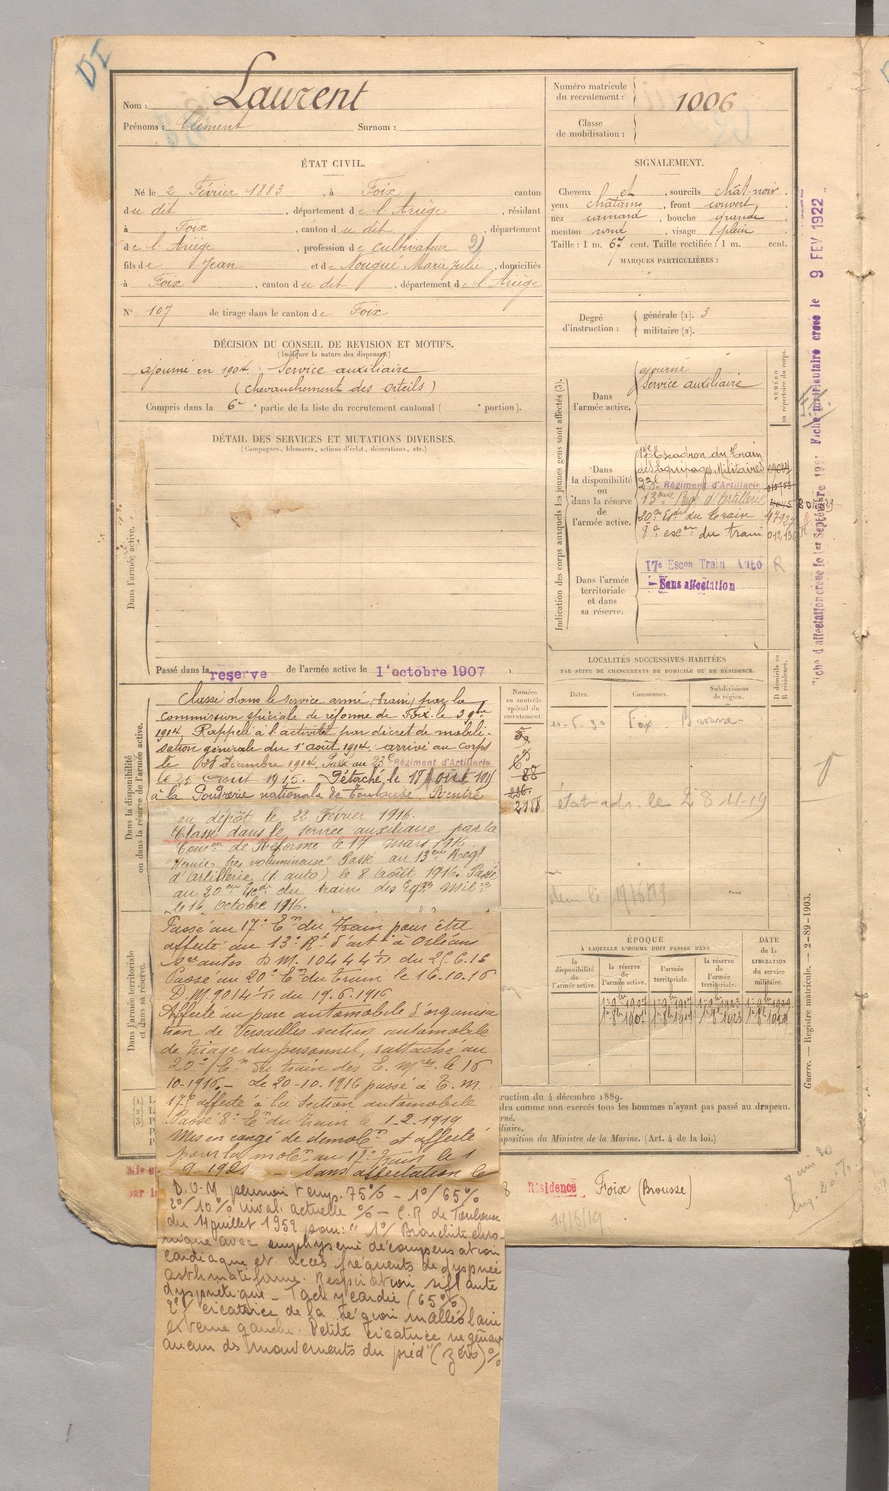 DI
Nom : Laurent
Prénoms : Clément Surnom :
ÉTAT CIVIL.
Né le 2 Février 1883, à Foix canton
du dit, département de l'Ariège, résidant
à Foix, canton du dit, département
de l'Ariège, profession de cultivateur 21
fils de Jean et de Nougué Marie Julie, domiciliés
à Foix, canton du dit, département de l'Ariège
N° 107 de tirage dans le canton de Foix
DÉCISION DU CONSEIL DE REVISION ET MOTIFS.
(Indiquer la nature des dispenses.)
ajourné en 1904. Service auxiliaire
(chevauchement des orteils)
Compris dans la 6e partie de la liste du recrutement cantonal ( portion).
DÉTAIL DES SERVICES ET MUTATIONS DIVERSES.
(Campagnes, blessures, actions d'éclat, décorations, etc.)
Dans l'armée active.
Passé dans la reserve de l'armée active le 1er octobre 1907
Dans la disponibilité
ou dans la réserve de l'armée active.
Classé dans le service armé (train) par la
commission spéciale de réforme de Foix le 3 9bre
1914. Rappelé à l'activité par décret de mobili-
sation générale du 1er août 1914. arrivé au corps
le Décembre 1914. Passé au 23e Régiment d'Artillerie
le 25 Août 1915. Détaché le 18 août 1915
à la Poudrerie nationale de Toulouse. Rentré
au dépôt le 22 Février 1916.
Classé dans le service auxiliaire par la
Comon de Réforme le 17 mars 1916
"Hernie très volumineuse" Passé au 13ème Regt
d'Artillerie (1 auto) le 8 août 1916. Passé
au 20me du train des Eqges Milres
le 16 octobre 1916.
Dans l'armée territoriale
et dans sa réserve.
Passé au 17e En du Train pour être
affecté au 13e Rt d'arte à Orléans
autos D.M. 10444 du 25.6.16
Passé au 20e En du Train le 16-10-16
D.M. 9214 du 19.6.1916
Affecté au parc automobile d'organisa
tion de Versailles section automobile
de triage du personnel, rattaché au
20e En de train des E. Mres le 16
10-1916. - Le 20-10.1916 passé à E.M.
17e affecté à la section automobile
Passé 8e En du train le 1-2-1919
Mis en congé de démobon et affecté
pour la mobon au 17e Train le 1
9-1921 - Sans affectation le
D.O.M. temp. 75% - 1°/ 65%
2°/ 10% inval. actuelle % - C.R. de Toulouse
du 4 juillet 1952 pour: "1°/ Bronchite chro-
nique avec emphysème décompensation
cardiaque et accès fréquents de dyspnée
asthmatiforme. Respiration sifflante
dyspnéique - Tachycardie (65%)
2°/ cicatrice de la région malléolaire
externe gauche. Petite cicatrice ne gênant
aucun ds mouvements du pied" (zéro) %
Numéro
au contrôle
spécial du
recrutement
2188
Numéro matricule
du recrutement : 1006
Classe
de mobilisation :
SIGNALEMENT.
Cheveux et, sourcils chât-noir,
yeux châtains, front couvert,
nez camard, bouche grande
menton rond, visage plein
Taille : 1 m. 67 cent. Taille rectifiée : 1 m. cent.
MARQUES PARTICULIÈRES :
Degré
d'instruction : générale (1). 3
militaire (2).
Indication des corps auxquels les jeunes gens sont affectés (3).
NUMÉRO
au répertoire du corps.
Dans
l'armée active.
ajourné
Service auxiliaire
Dans
la disponibilité
ou
dans la réserve
de
l'armée active.
17e Escadron du Train
des Equipages Militaires
23e Régiment d'Artillerie
13ème Reg. d'Artillerie
20e Eson du Train
8e escon du train
Dans l'armée
territoriale
et dans
sa réserve.
17e Escon Train Auto R
Sans affectation
LOCALITÉS SUCCESSIVES HABITÉES
PAR SUITE DE CHANGEMENTS DE DOMICILE OU DE RÉSIDENCE.
D domicile ou
R résidence.
Dates. Communes. Subdivisions
de région.
11-6-30 Foix Brousse
état adr. le 28-11-19
ÉPOQUE
À LAQUELLE L'HOMME DOIT PASSER DANS
DATE
de la
LIBÉRATION
du service
militaire.
la
disponibilité
de
l'armée active.
la réserve
de
l'armée active.
l'armée
territoriale.
la réserve
de
l'armée
territoriale.
ruction du 4 décembre 1889.
dra comme non exercés tous les hommes n'ayant pas passé au drapeau.
rné.
iliaire.
sposition du Ministre de la Marine. (Art. 4 de la loi.)
Résidence Foix (Brousse)
14/6/19
Guerre. — Registre matricule. — 2-89-1903.
9 FEV 1922